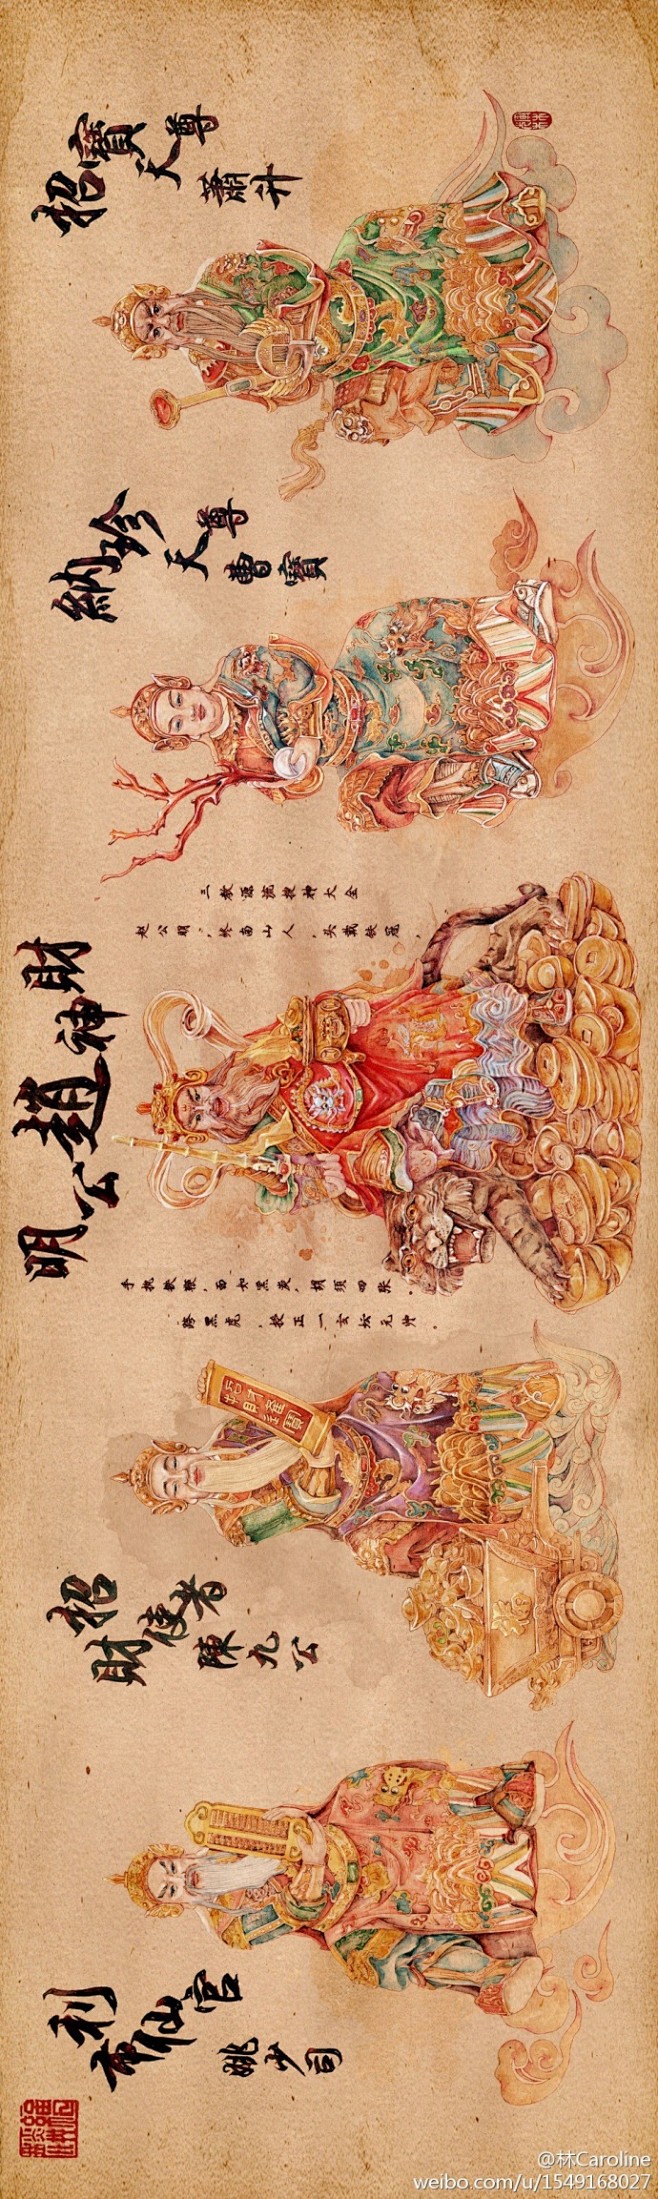 招寶天尊
蕭升
納珍天尊
曹寶
三教源流搜神大全
赵公明,,终南山人,头戴铁冠,
財神趙公明
手执铁鞭,面如黑炭,胡须四张。
跨黑虎,授正一玄坛元帅。
招財使者
陳九公
利市仙官
姚少司
@林Caroline
weibo.com/u/1549168027